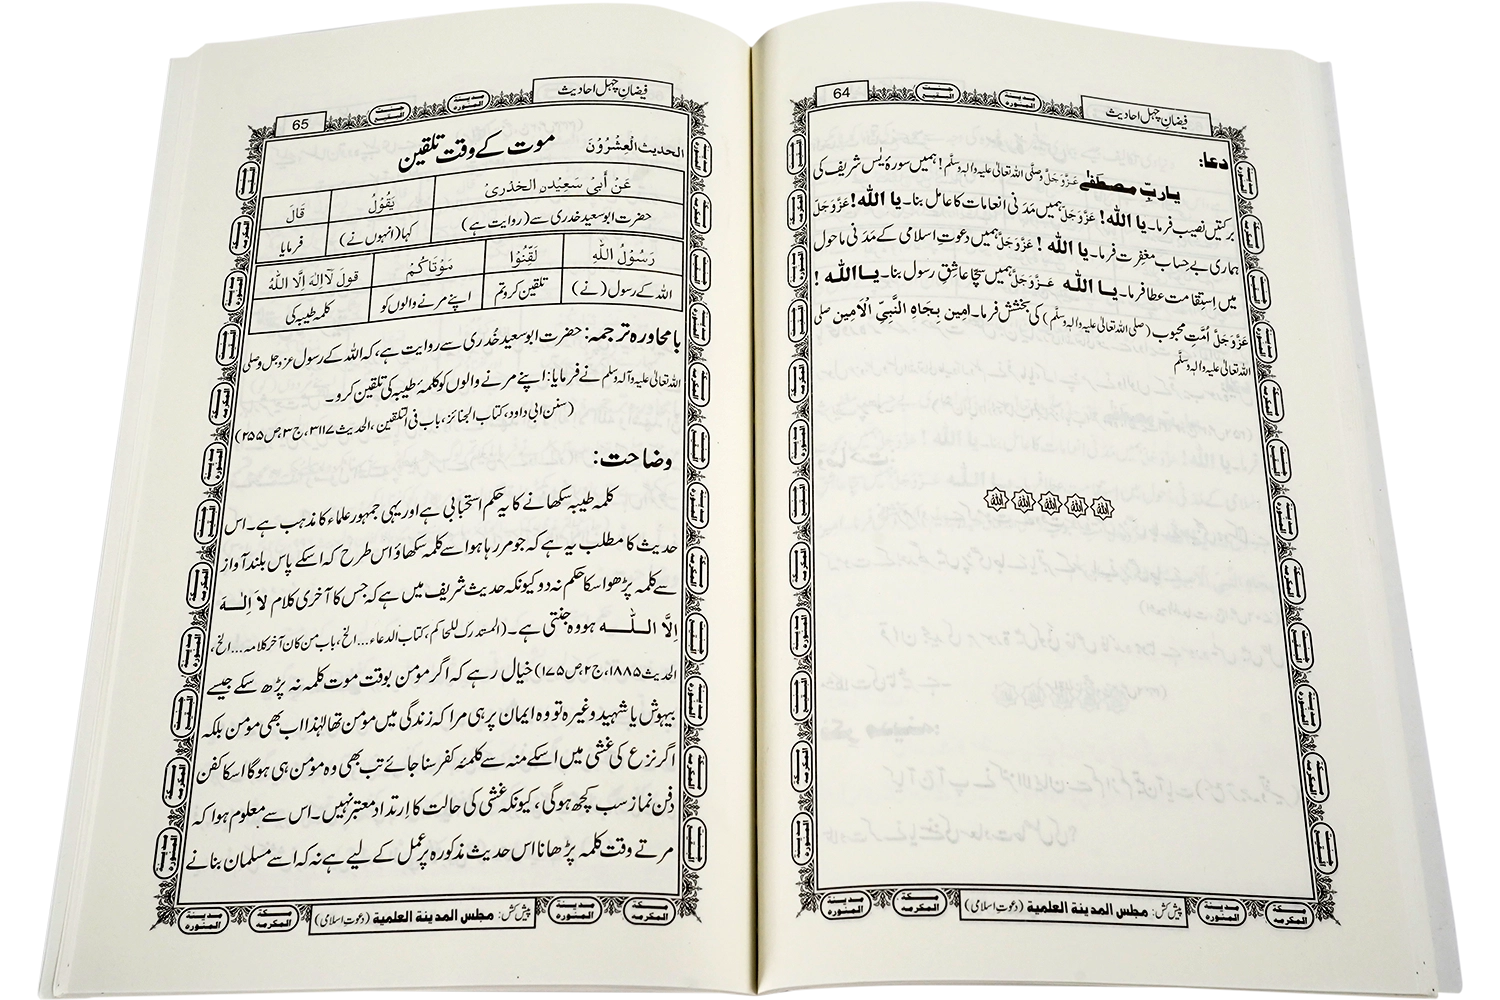 64
فیضانِ چہل احادیث
دعا:
یاربِّ مصطَفٰے عَزَّوَجَلَّ وصلَّی اللہ تعالٰی علیہ والہٖ وسلَّم! ہمیں سورۂ یٰسٓ شریف کی
برکتیں نصیب فرما۔ یا اللہ! عَزَّوَجَلَّ ہمیں مَدَنی انعامات کا عامل بنا۔ یا اللہ! عَزَّوَجَلَّ
ہماری بے حساب مغفِرت فرما۔ یا اللہ! عَزَّوَجَلَّ ہمیں دعوتِ اسلامی کے مَدَنی ماحول
میں اِستِقامت عطا فرما۔ یا اللہ عَزَّوَجَلَّ ہمیں سچّا عاشِقِ رسول بنا۔ یا اللہ!
عَزَّوَجَلَّ اُمّتِ محبوب (صلی اللہ تعالٰی علیہ والہ وسلَّم) کی بخشش فرما۔ امِین بِجَاہِ النَّبِیِّ الْاَمِین صلی
اللہ تعالٰی علیہ والہ وسلَّم
پیش کش: مجلس المدینۃ العلمیۃ (دعوتِ اسلامی)
65
فیضانِ چہل احادیث
الحدیث الْعِشْرُوْنَ
موت کے وقت تلقین
عَنْ أَبِیْ سَعِیْدِنِ الخدریْ
یَقُوْلُ
قَالَ
حضرت ابو سعید خدری سے (روایت ہے)
کہا (انہوں نے)
فرمایا
رَسُوْلُ اللهِ
لَقِّنُوْا
مَوْتَاکُمْ
قول لَآاِلٰہَ اِلَّا اللهُ
اللہ کے رسول (نے)
تلقین کرو تم
اپنے مرنے والوں کو
کلمہ طیبہ کی
بامحاورہ ترجمہ: حضرت ابو سعید خُدری سے روایت ہے، کہ اللہ کے رسول عزوجل وصلی
اللہ تعالیٰ علیہ وآلہ وسلم نے فرمایا: اپنے مرنے والوں کو کلمۂ طیبہ کی تلقین کرو۔
(سنن ابی داود، کتاب الجنائز، باب فی التلقین، الحدیث ۳۱۱۷، ج۳، ص۲۵۵)
وضاحت:
کلمہ طیبہ سکھانے کا یہ حکم استحبابی ہے اور یہی جمہور علماء کا مذہب ہے۔ اس
حدیث کا مطلب یہ ہے کہ جو مر رہا ہو اسے کلمہ سکھاؤ اس طرح کہ اسکے پاس بلند آواز
سے کلمہ پڑھو اسکا حکم نہ دو کیونکہ حدیث شریف میں ہے کہ جس کا آخری کلام لَا اِلٰہَ
اِلَّا اللّٰہ ہو وہ جنتی ہے۔ (المستدرک للحاکم، کتاب الدعاء...الخ، باب من کان آخر کلامہ...الخ،
الحدیث ۱۸۸۵، ج۲، ص۱۷۵) خیال رہے کہ اگر مؤمن بوقت موت کلمہ نہ پڑھ سکے جیسے
بیہوش یا شہید وغیرہ تو وہ ایمان پر ہی مرا کہ زندگی میں مؤمن تھا لہٰذا اب بھی مؤمن بلکہ
اگر نزع کی غشی میں اسکے منہ سے کلمۂ کفر سنا جائے تب بھی وہ مؤمن ہی ہوگا اسکا کفن
دفن نماز سب کچھ ہوگی، کیونکہ غشی کی حالت کا اِرتداد معتبر نہیں۔ اس سے معلوم ہوا کہ
مرتے وقت کلمہ پڑھانا اس حدیث مذکورہ پر عمل کے لیے ہے نہ کہ اسے مسلمان بنانے
پیش کش: مجلس المدینۃ العلمیۃ (دعوتِ اسلامی)